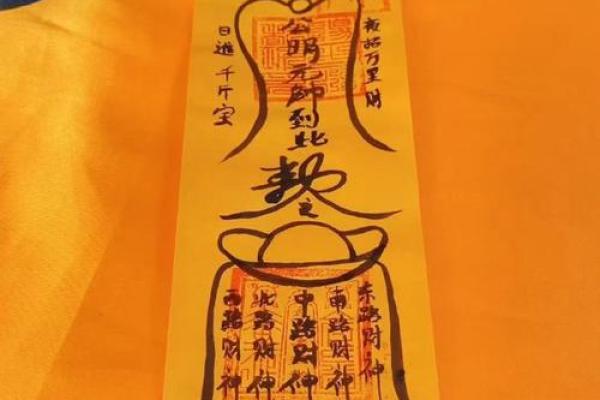 夜招万里财
公明元帥到此
日進千斤宝
敕
之
东路财神
南路财神
中路财神
北路财神
西路财神